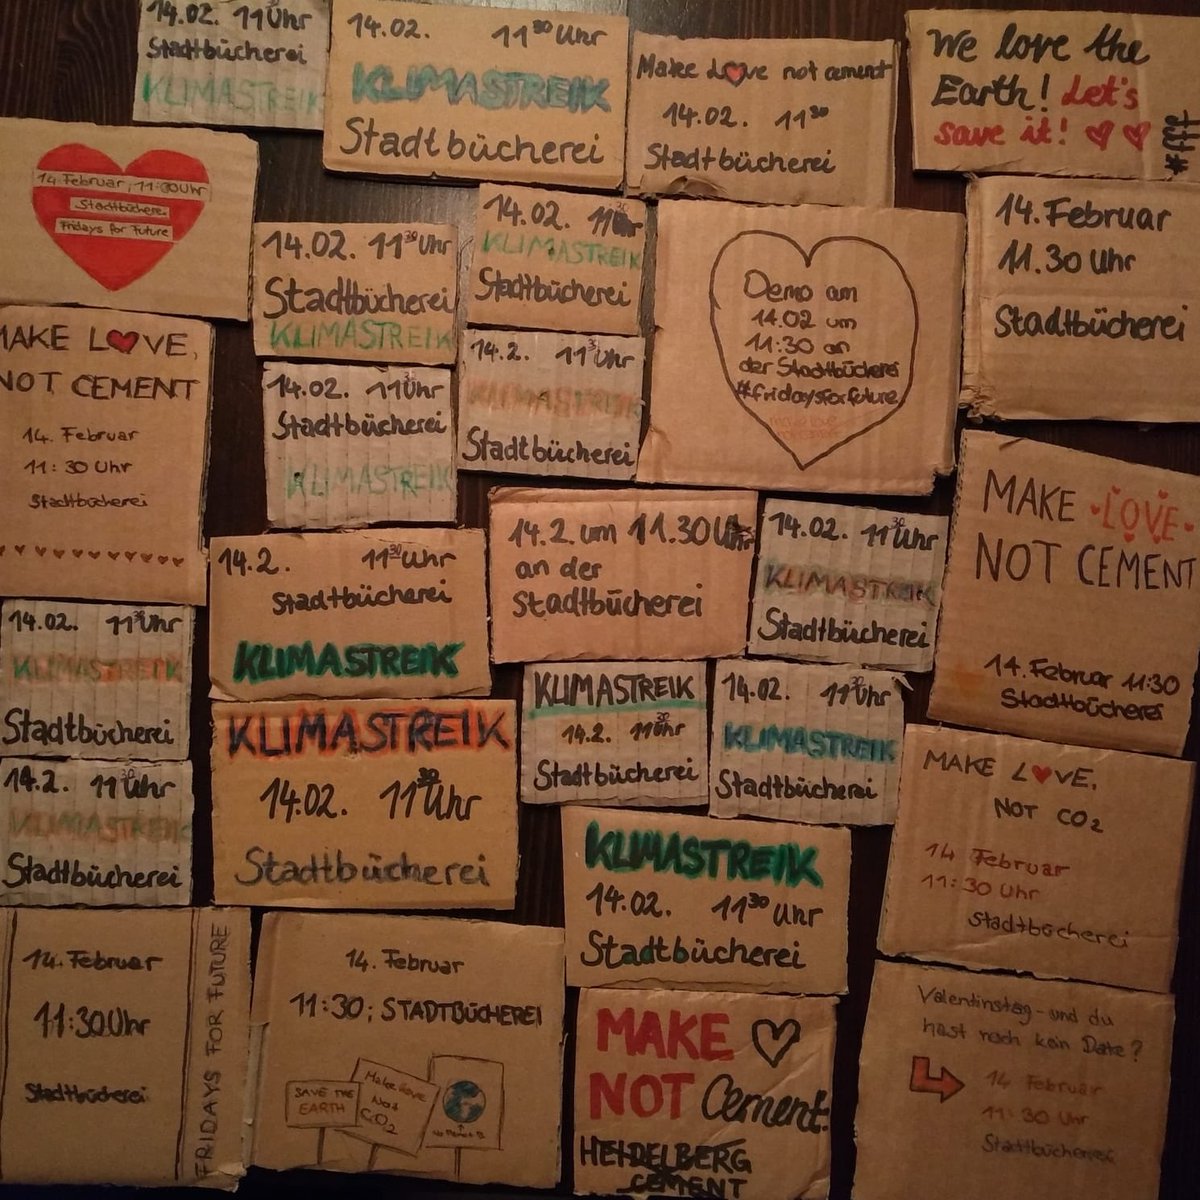 14.02. 11 Uhr
Stadtbücherei
KLIMASTREIK
14.02. 11³⁰ Uhr
KLIMASTREIK
Stadtbücherei
Make Love not cement
14.02. 11³⁰
Stadtbücherei
We love the
Earth! Let's
save it!
#fff
14. Februar, 11:30 Uhr
Stadtbücherei
Fridays for Future
14.02. 11³⁰ Uhr
Stadtbücherei
KLIMASTREIK
14.02. 11³⁰ Uhr
KLIMASTREIK
Stadtbücherei
Demo am
14.02 um
11:30 an
der Stadtbücherei
#fridaysforfuture
make love
14. Februar
11.30 Uhr
Stadtbücherei
MAKE LOVE,
NOT CEMENT
14. Februar
11:30 Uhr
Stadtbücherei
14.02. 11 Uhr
Stadtbücherei
KLIMASTREIK
14.2. 11³⁰ Uhr
KLIMASTREIK
Stadtbücherei
14.2. 11³⁰ Uhr
Stadtbücherei
KLIMASTREIK
14.2. um 11.30 Uhr
an der
Stadtbücherei
14.02. 11³⁰ Uhr
KLIMASTREIK
Stadtbücherei
MAKE LOVE
NOT CEMENT
14. Februar 11:30
Stadtbücherei
14.02. 11³⁰ Uhr
KLIMASTREIK
Stadtbücherei
KLIMASTREIK
14.02. 11³⁰ Uhr
Stadtbücherei
KLIMASTREIK
14.2. 11³⁰ Uhr
Stadtbücherei
14.02. 11³⁰ Uhr
KLIMASTREIK
Stadtbücherei
MAKE LOVE,
NOT CO2
14 Februar
11:30 Uhr
Stadtbücherei
14.2. 11³⁰ Uhr
KLIMASTREIK
Stadtbücherei
KLIMASTREIK
14.02. 11³⁰ Uhr
Stadtbücherei
14. Februar
11:30 Uhr
Stadtbücherei
FRIDAYS FOR FUTURE
14. Februar
11:30; STADTBÜCHEREI
SAVE THE
EARTH
Make love
Not
CO2
No Planet B
MAKE
NOT Cement
HEIDELBERG
CEMENT
Valentinstag - und du
hast noch kein Date?
14 Februar
11:30 Uhr
Stadtbücherei